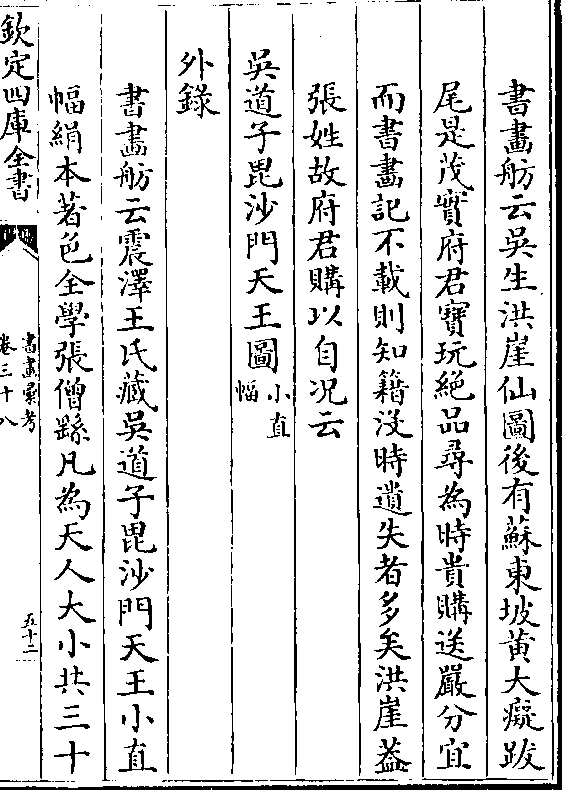 書畫舫云吳生洪崖仙圖後有蘇東坡黄大癡跋
尾是茂實府君寶玩絶品尋為時貴購送嚴分宜
而書畫記不載則知籍没時遺失者多矣洪崖葢
張姓故府君購以自况云
吳道子毘沙門天王圖小直幅
外錄
書畫舫云震澤王氏藏吳道子毘沙門天王小直
幅絹本著色全學張僧繇凡為天人大小共三十
欽定四庫全書
書畫彚考
卷三十八
五十二